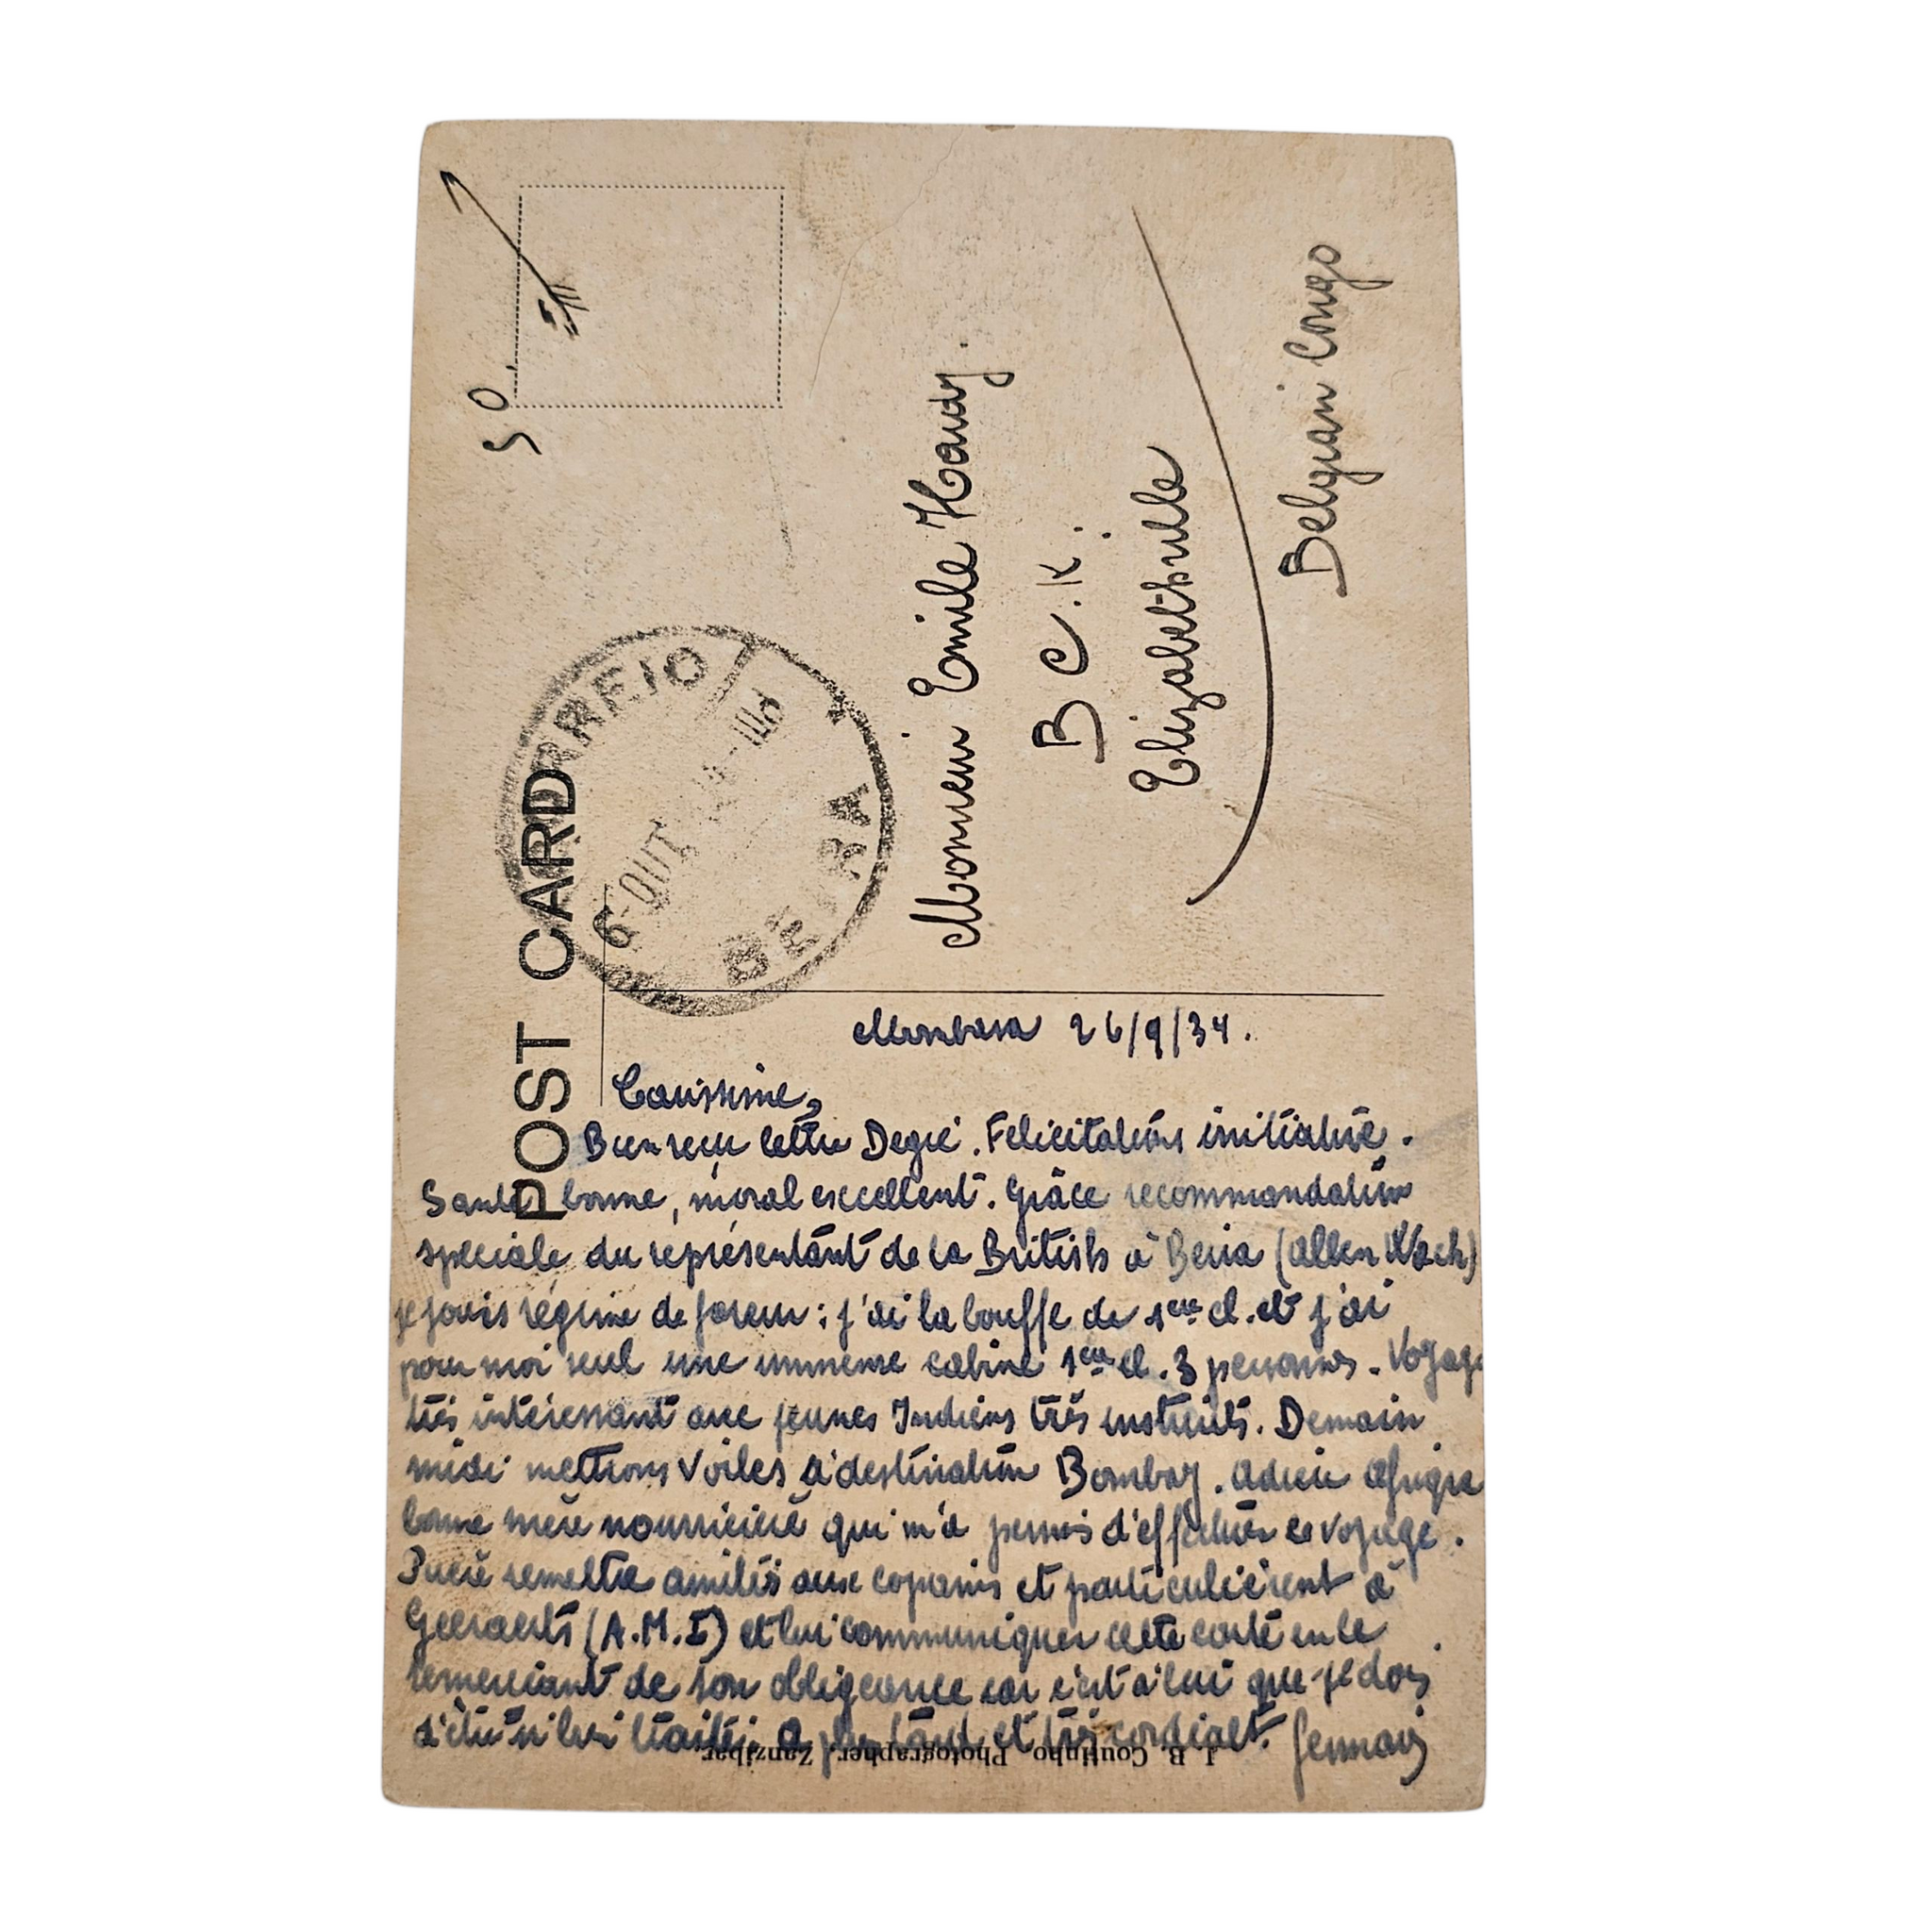 POST CARD
CORREIO
6 OUT
BEIRA
Monsieur Emile Hardy.
B C. K.
Elizabethville
Belgian Congo
Mombasa 26/9/34.
Bien reçu lettre Degré. Felicitations initiative.
Santé bonne, moral excellent. Grâce recommandation
speciale du représentant de la British à Beira (Allen Wack)
je jouis régime de faveur : j'ai la bouffe de 1ere cl. et j'ai
pour moi seul une immense cabine 1ere cl. 3 personnes. Voyage
très intéressant avec jeunes Indiens très instruits. Demain
midi mettrons voiles à destination Bombay. Adieu Afrique
bonne mère nourricière qui m'a permis d'effectuer ce voyage.
Prière remettre amitiés aux copains et particulièrent à
Geeraerts (A.M.I) et lui communiquer cette carte en le
remerciant de son obligeance car c'est à lui que je dois
d'être si bien traité. A plus tard et très cordialt.
J. B. Coutinho Photographer, Zanzibar